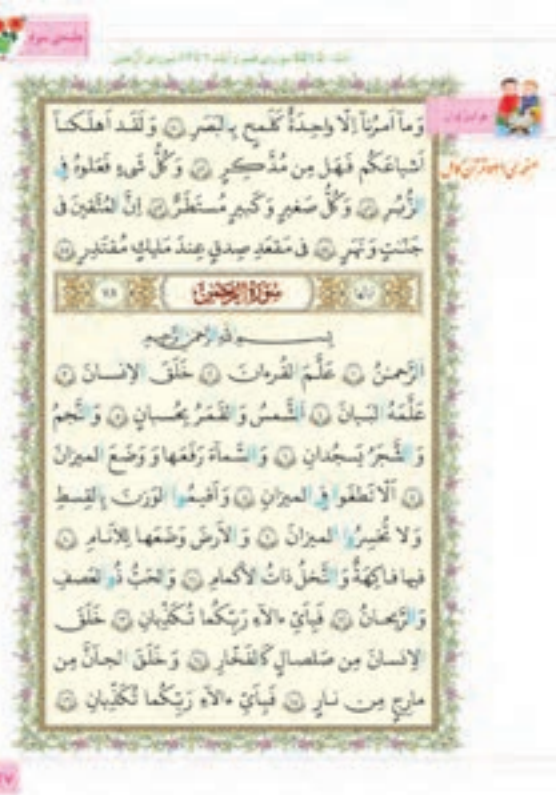 جلسه‌ی سوم
وَ ما اَمرُنا اِلّا واحِدَةٌ كَلَمحٍ بِالبَصَرِ ۵۰ وَ لَقَد اَهلَكنا
اَشياعَكُم فَهَل مِن مُدَّكِرٍ ۵۱ وَ كُلُّ شَیءٍ فَعَلوهُ فِی
الزُّبُرِ ۵۲ وَ كُلُّ صَغيرٍ وَ كَبيرٍ مُستَطَرٌ ۵۳ اِنَّ المُتَّقينَ فی
جَنّٰتٍ وَ نَهَرٍ ۵۴ فی مَقعَدِ صِدقٍ عِندَ مَليكٍ مُقتَدِرٍ ۵۵
سُورَةُ الرَّحمٰن ۷۸
بِسمِ اللهِ الرَّحمٰنِ الرَّحيمِ
اَلرَّحمٰنُ ۱ عَلَّمَ القُرءانَ ۲ خَلَقَ الاِنسانَ ۳
عَلَّمَهُ البَيانَ ۴ اَلشَّمسُ وَ القَمَرُ بِحُسبانٍ ۵ وَ النَّجمُ
وَ الشَّجَرُ يَسجُدانِ ۶ وَ السَّماءَ رَفَعَها وَ وَضَعَ الميزانَ
۷ اَلّا تَطغَوا فِی الميزانِ ۸ وَ اَقيمُوا الوَزنَ بِالقِسطِ
وَ لا تُخسِرُوا الميزانَ ۹ وَ الاَرضَ وَضَعَها لِلاَنامِ ۱۰
فيها فاكِهَةٌ وَ النَّخلُ ذاتُ الاَكمامِ ۱۱ وَ الحَبُّ ذُو العَصفِ
وَ الرَّيحانُ ۱۲ فَبِاَیِّ ءالاءِ رَبِّكُما تُكَذِّبانِ ۱۳ خَلَقَ
الاِنسانَ مِن صَلصالٍ كَالفَخّارِ ۱۴ وَ خَلَقَ الجانَّ مِن
مارِجٍ مِن نارٍ ۱۵ فَبِاَیِّ ءالاءِ رَبِّكُما تُكَذِّبانِ ۱۶